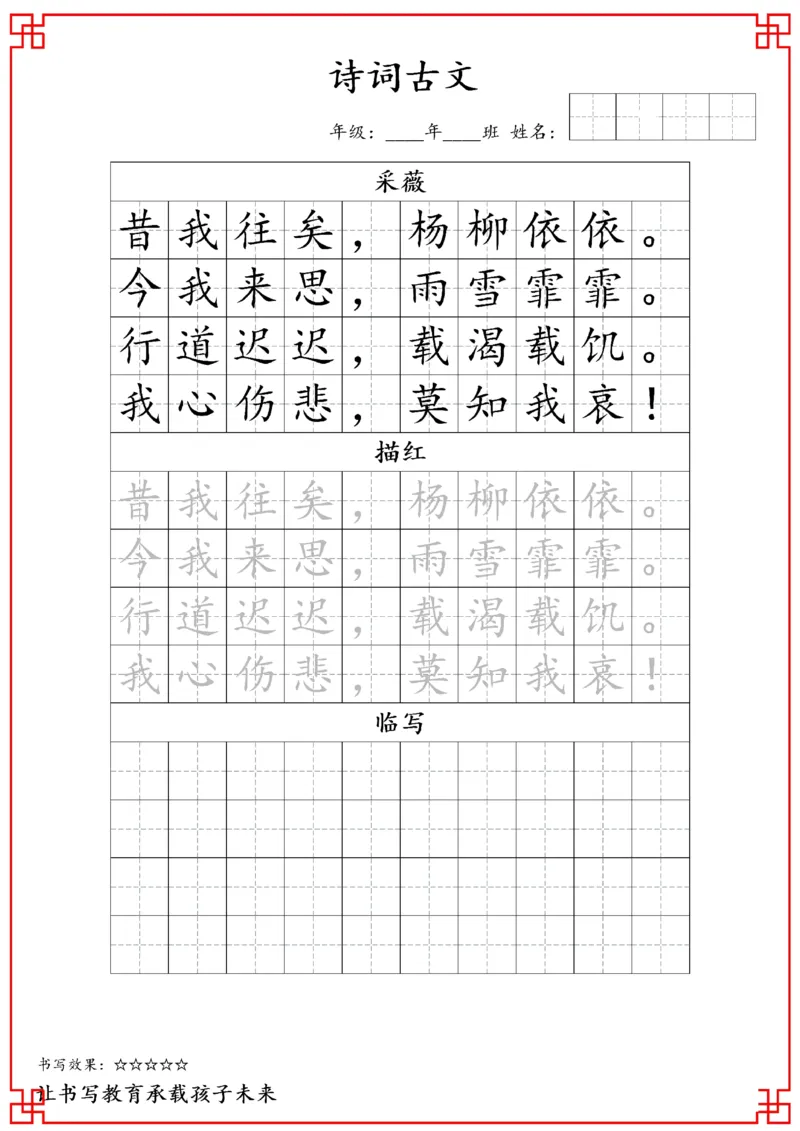 诗词古文
年级：____年____班 姓名：
采薇
昔我往矣，杨柳依依。
今我来思，雨雪霏霏。
行道迟迟，载渴载饥。
我心伤悲，莫知我哀！
描红
昔我往矣，杨柳依依。
今我来思，雨雪霏霏。
行道迟迟，载渴载饥。
我心伤悲，莫知我哀！
临写
书写效果：☆☆☆☆☆
让书写教育承载孩子未来